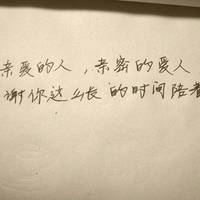 亲爱的人，亲密的爱人
谢你这么长的时间陪着